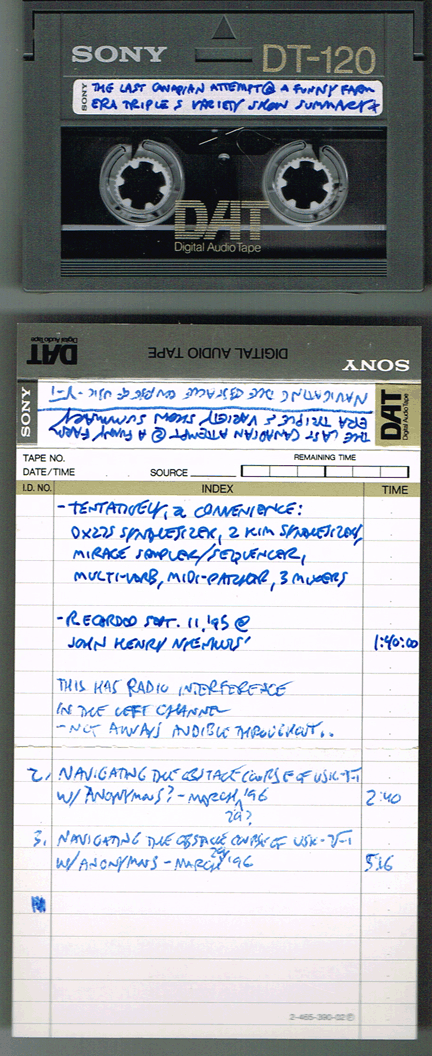 SONY
DT-120
SONY
THE LAST CANADIAN ATTEMPT @ A FUNNY FARM
ERA TRIPLE S VARIETY SHOW SUMMARY
DAT
Digital Audio Tape
SONY
DIGITAL AUDIO TAPE
DAT
Digital Audio Tape
NAVIGATING THE OBSTACLE COURSE OF USIC -√-1
THE LAST CANADIAN ATTEMPT @ A FUNNY FARM
ERA TRIPLE S VARIETY SHOW SUMMARY
SONY
DAT
Digital Audio Tape
TAPE NO.
DATE/TIME
SOURCE
REMAINING TIME
I.D. NO.
INDEX
TIME
- TENTATIVELY, a CONVENIENCE:
SYNTHESIZER, 2 KIM SYNTHESIZER,
MIRAGE SAMPLER/SEQUENCER,
MULTI-VERB, MIDI-PATCHER, 3 MIXERS
- RECORDED SAT. 11, '95 @
JOHN HENRY NYENHUIS'
1:40:00
THIS HAS RADIO INTERFERENCE
IN THE LEFT CHANNEL
- NOT ALWAYS AUDIBLE THROUGHOUT..
2. NAVIGATING THE OBSTACLE COURSE OF USIC -√-1
W/ ANONYMOUS? - MARCH, '96
29?
2:40
3. NAVIGATING THE OBSTACLE COURSE OF USIC -√-1
W/ ANONYMOUS - MARCH 29, '96
5:16
2-465-390-02